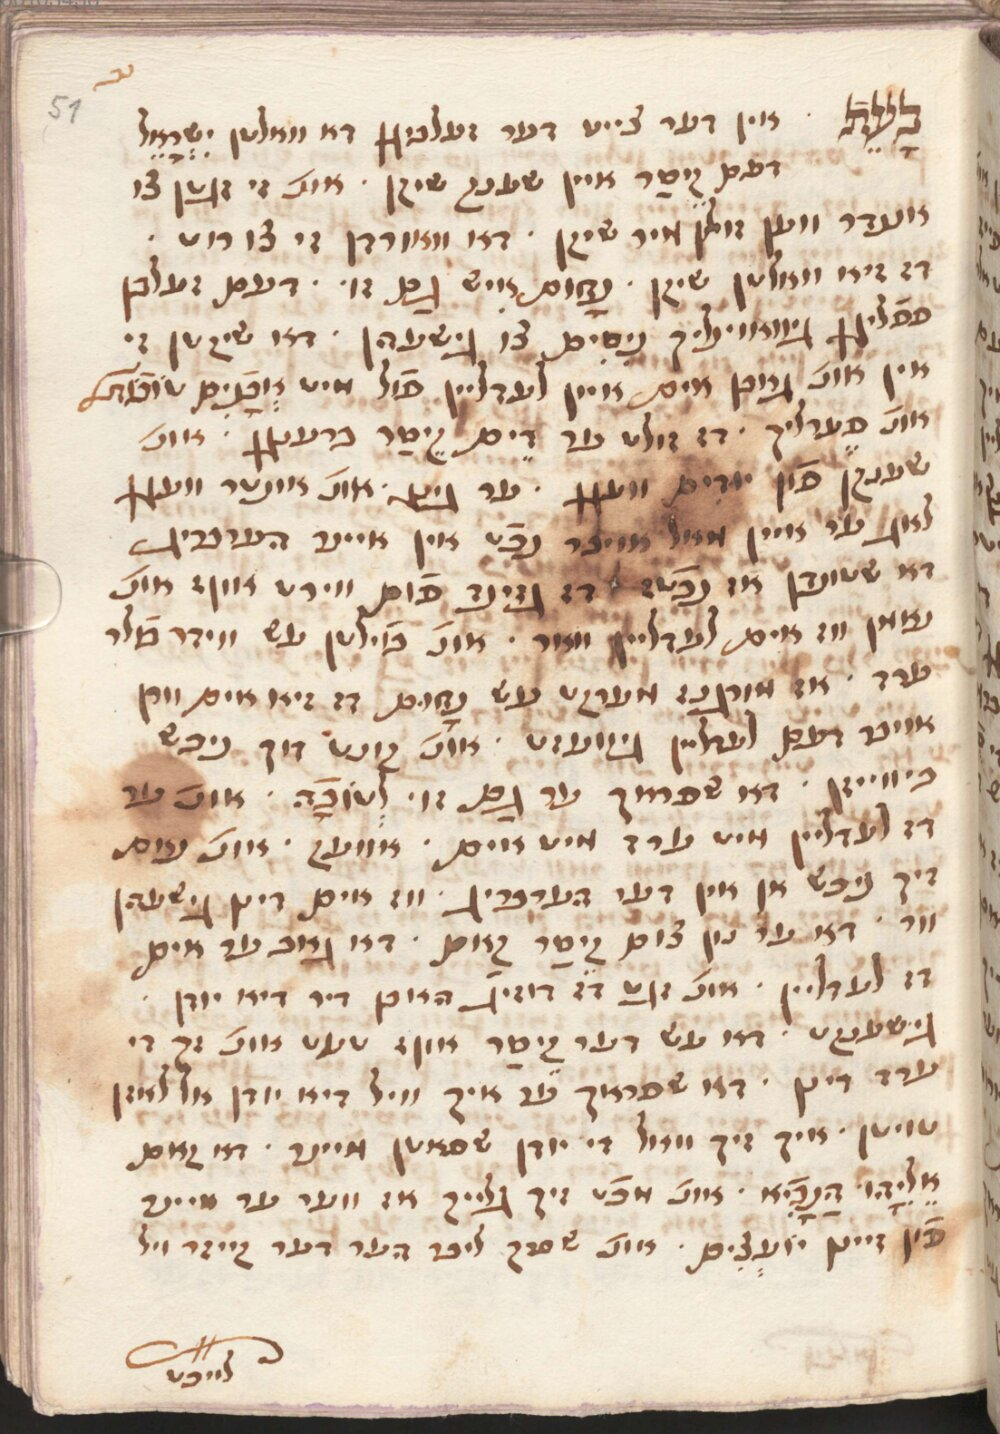 51
אין דער צייט דער זעלביגן דא וואלטן יִשְׂרָאֵל
דעם קֵיסַר איין שענק שיקן · אונ' זי זגטן צו
אנדר ווען זולן מיר שיקן · דא וואורדן זי צו רוט ·
דז זיא וואלטן שיקן · נַחוּם אִישׁ גַם זוֹ · דעם זעלבן
גיוואוינליך נִיסִים צו גישעהן · דא שיקטן זי
אין אונ' גאבן אים איין לעדליין פֿול מיט אֲבָנִים טוֹבוֹת
אונ' פֶערליך · דז זולט ער דֶים קֵיסַר ברענגן · אונ'
שענקן פֿון יוּדִים וועגן · ער גינג · אונ' אונטר וועגן
לאג ער איין מאל איבר נכֿט אין איינר הערבריג
דא שטונדן אז נכֿטז דז גזינד פֿום ווירט אויף אונ'
נאמן ווז אים לעדליין וואר · אונ' פֿילטן עש ווידר פֿולר
ערד · אז מורגנז מערקט עש נַחוּם דז זיא אים ווזן
איבר דעם לעדליין גיוועזט · אונ' קונט דוך ניכש
ביווייזן · דא שפראך ער גַם זוֹ לְטוֹבָה · אונ' ער
דז לעדליין מיט ערד מיט אים · אוועק · אונ' נאם
זיך ניכש אן אין דער הערבריג · ווז אים דינן גישעהן
וור · דא ער נון צום קֵיסַר קאם · דא גאב ער אים
דז לעדליין · אונ' זגט דז דוזיג האבן דיר דיא יודן ·
גישענקט · דא עש דער קֵיסַר אויף טעט אונ' זך די
ערד דינן · דא שפראך ער איך וויל דיא יודן אל לאזן
טויטן · איך זיך וואל די יודן שפאטן מיינר · דא קאם
אֵלִיָהוּ הַנָבִיא · אונ' מכֿט זיך גלייך אז ווער ער איינר
פֿון זיינן יוֹעֲצִים · אונ' שפרך ליבר הער דער קייזר וויל
לייכט